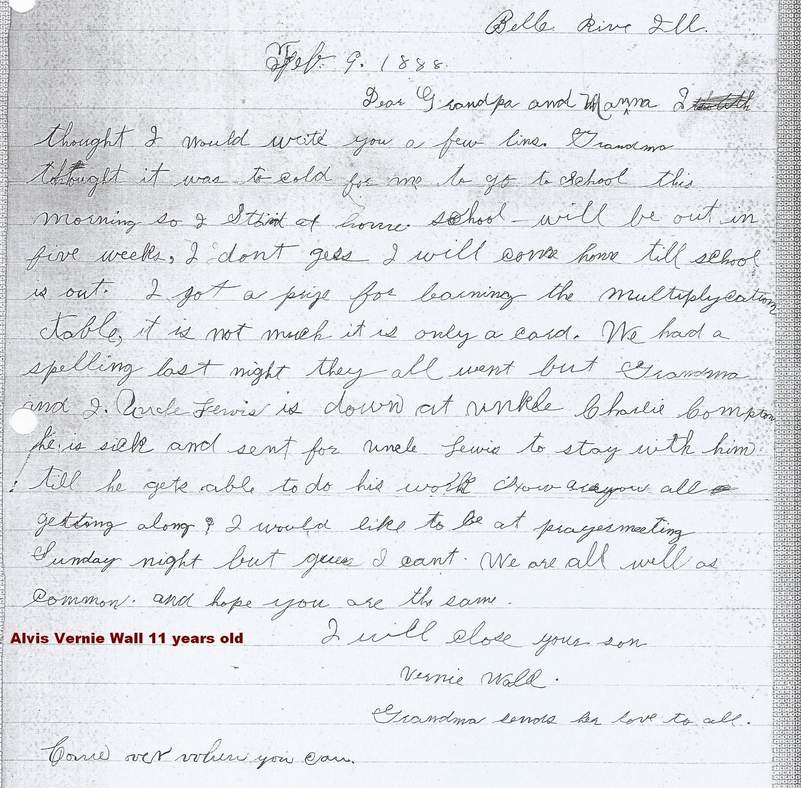 Belle Rive Ill.
Feb. 9. 1888.
Dear Grandpa and Mamma I
thought I would write you a few lins. Grandma
thought it was to cold for me to go to school this
morning so I staid at home. school will be out in
five weeks, I dont gess I will come home till school
is out. I got a prize for learning the multiplycation
table, it is not much it is only a card. We had a
spelling last night they all went but Grandma
and I. Uncle Lewis is down at unkle Charlie Compton
he is sick and sent for uncle Lewis to stay with him
till he gets able to do his work How are you all
getting along ? I would like to be at prayermeeting
Sunday night but guess I cant. We are all well as
common. and hope you are the same.
Alvis Vernie Wall 11 years old
I will close your son
Vernie Wall.
Grandma sends her love to all.
Come over when you can.